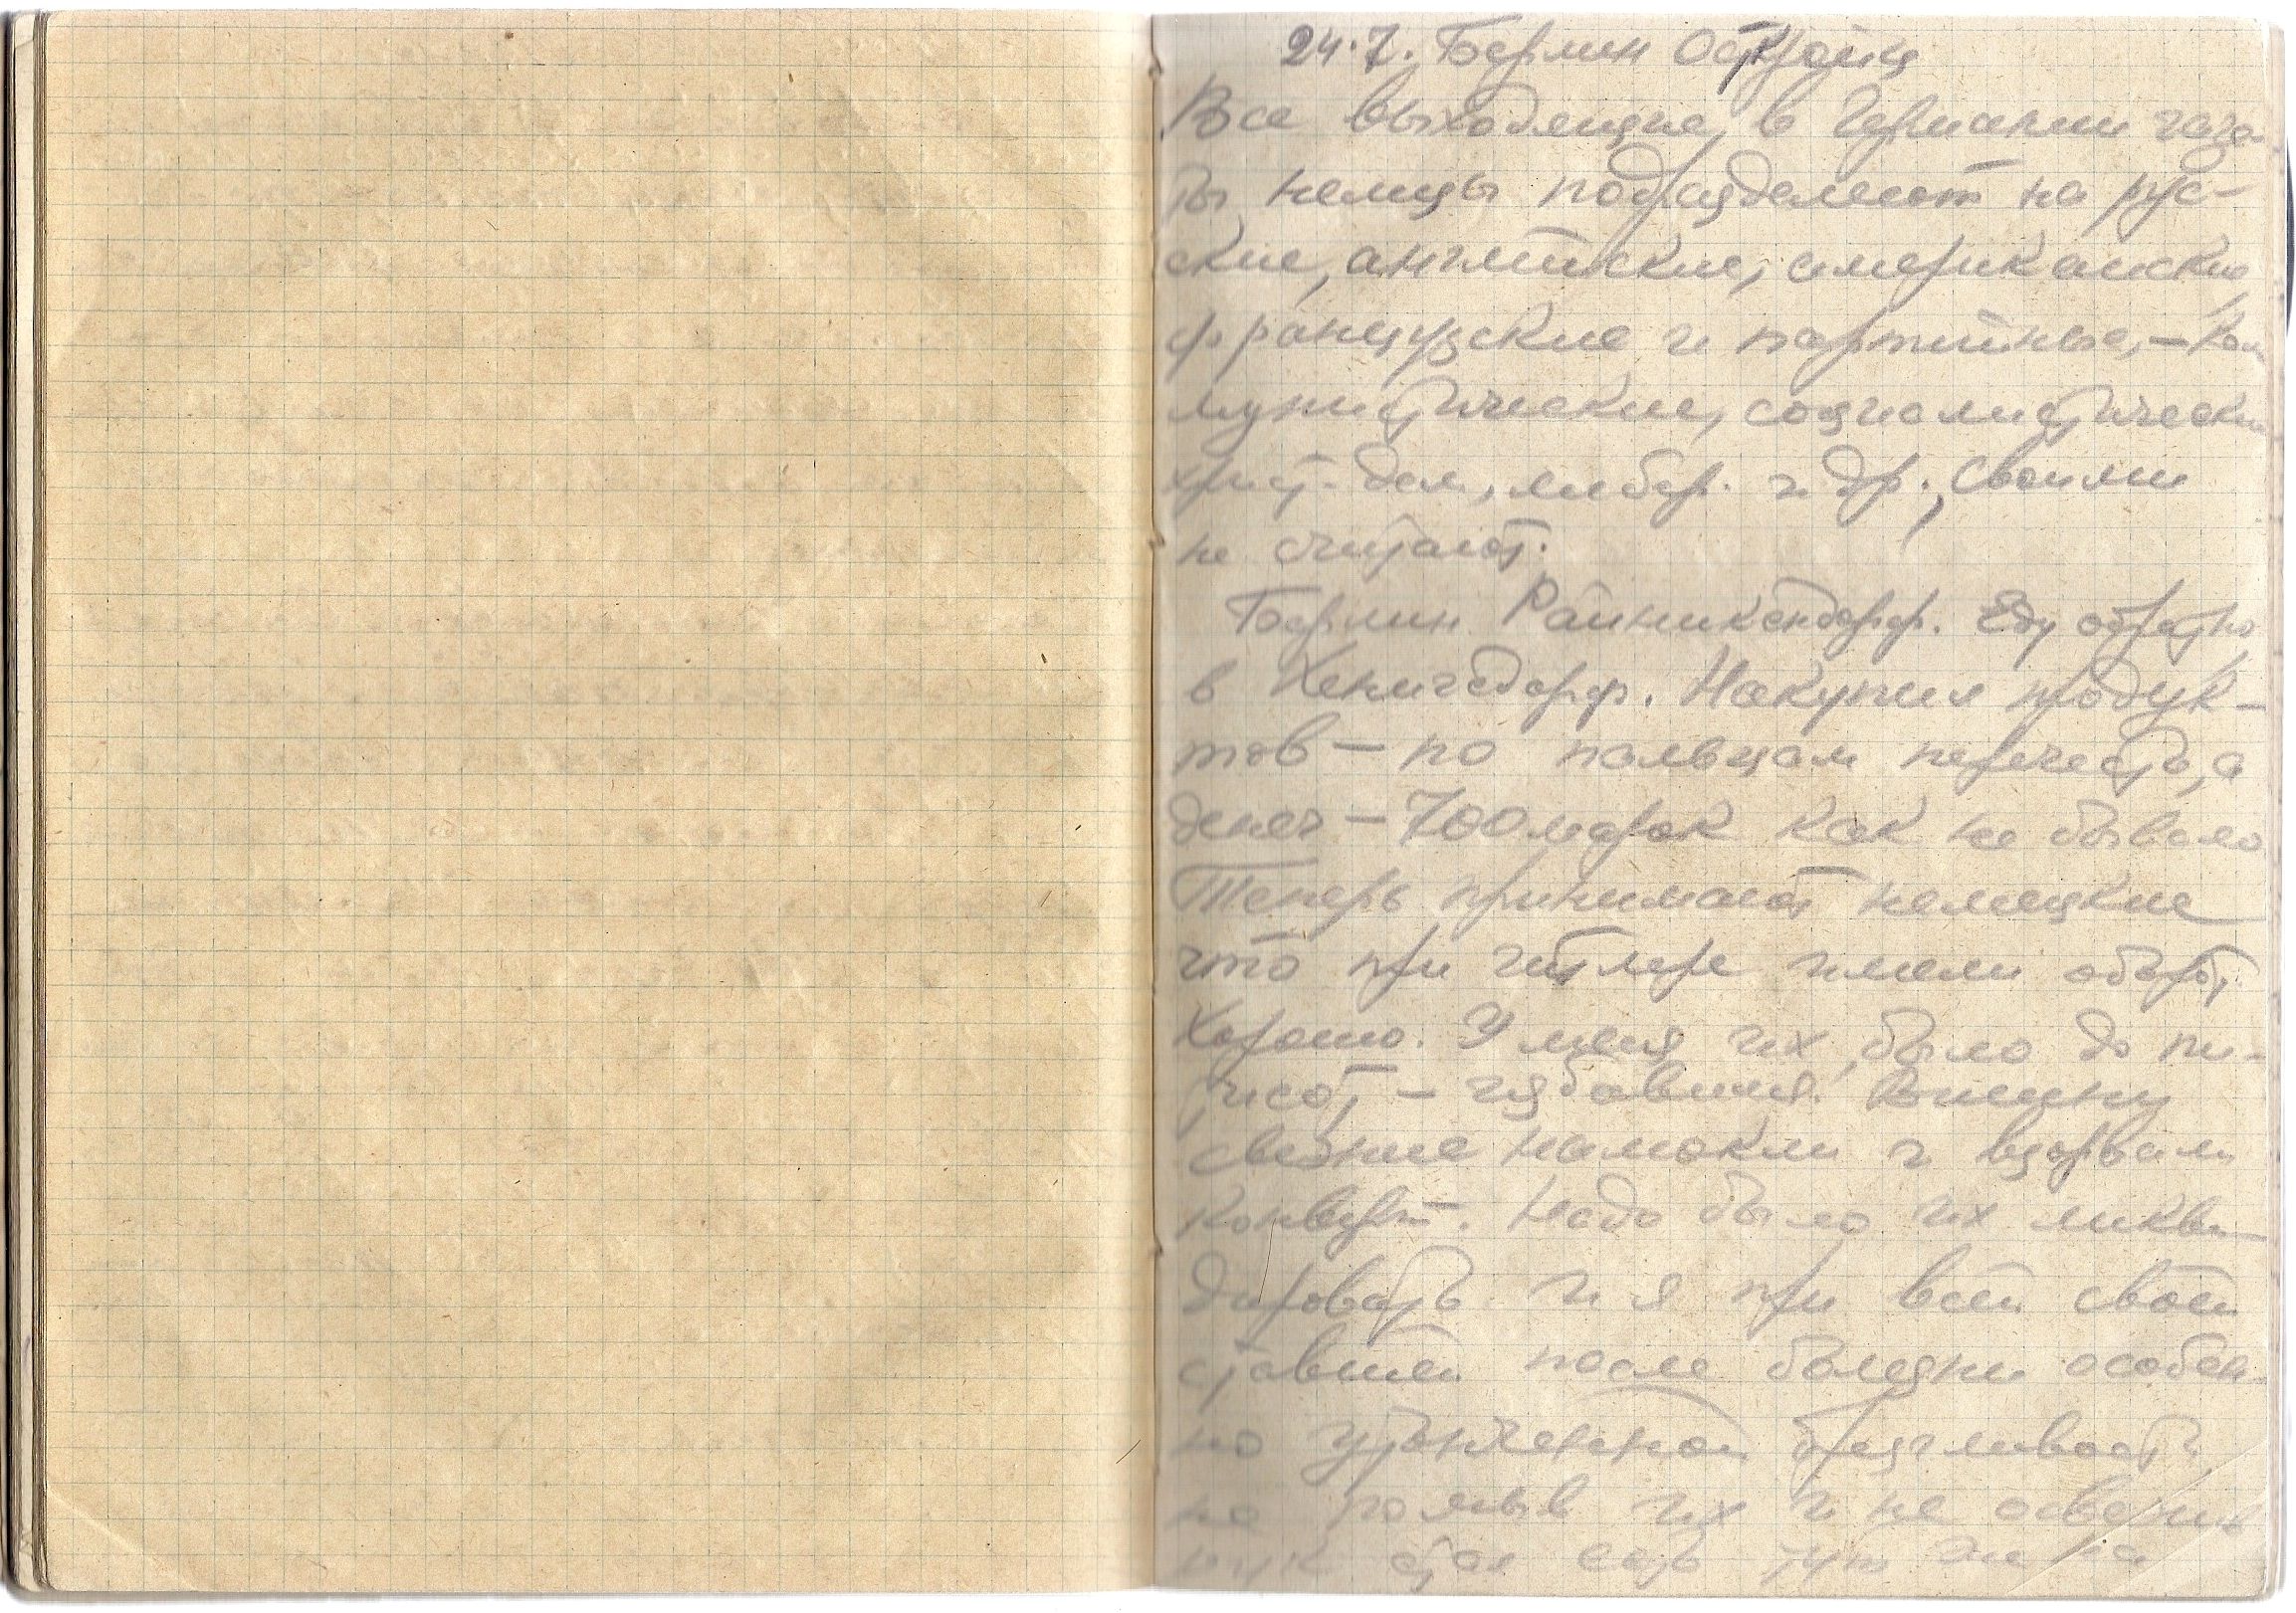 24.7. Берлин Осткрайц
Все выходящие в Германии газе
ты немцы подразделяют на рус-
ские, английские, американские,
французские и партийные, – ком
мунистические, социалистические
христ-дем, либер. и др., своими
не считают.
Берлин Райникендорф. Еду обратно
в Хенигсдорф. Накупил продук-
тов – по пальцам перечесть, а
денег – 700 марок как не бывало
Теперь принимают немецкие
что при гитлере имели оборот,
Хорошо. У меня их было до
– избавился. Вишни
свежие намокли и взорвали
конверт. Надо было их ликви-
дировать и я при всей своей
ставшей после болезни особен-
но утонченной брезгливости
не помыв их и не освежив
рук стал есть тут же на